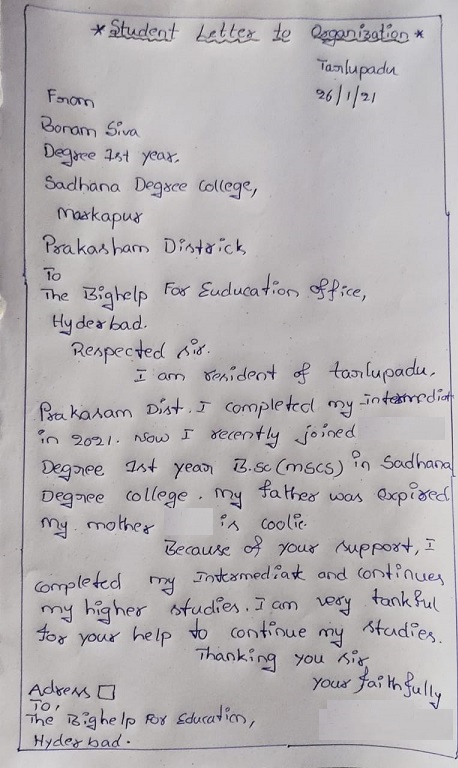 *Student Letter to Organization*
Tarlupadu
26/1/21
From
Bonam Siva
Degree 1st year.
Sadhana Degree College,
Markapur
Prakasham Districk
To
The Bighelp For Euducation office,
Hyderbad.
Respected sir.
I am resident of tarlupadu.
Prakasam Dist. I completed my intermediat
in 2021. Now I recently joined
Degree 1st year B.sc (mscs) in Sadhana
Degree college. my father was expired
my mother is coolie.
Because of your support, I
completed my Intermediat and continues
my higher studies. I am very tankful
for your help to continue my studies.
Thanking you sir
your faithfully
Adress
To,
The Bighelp For Education,
Hyderbad.